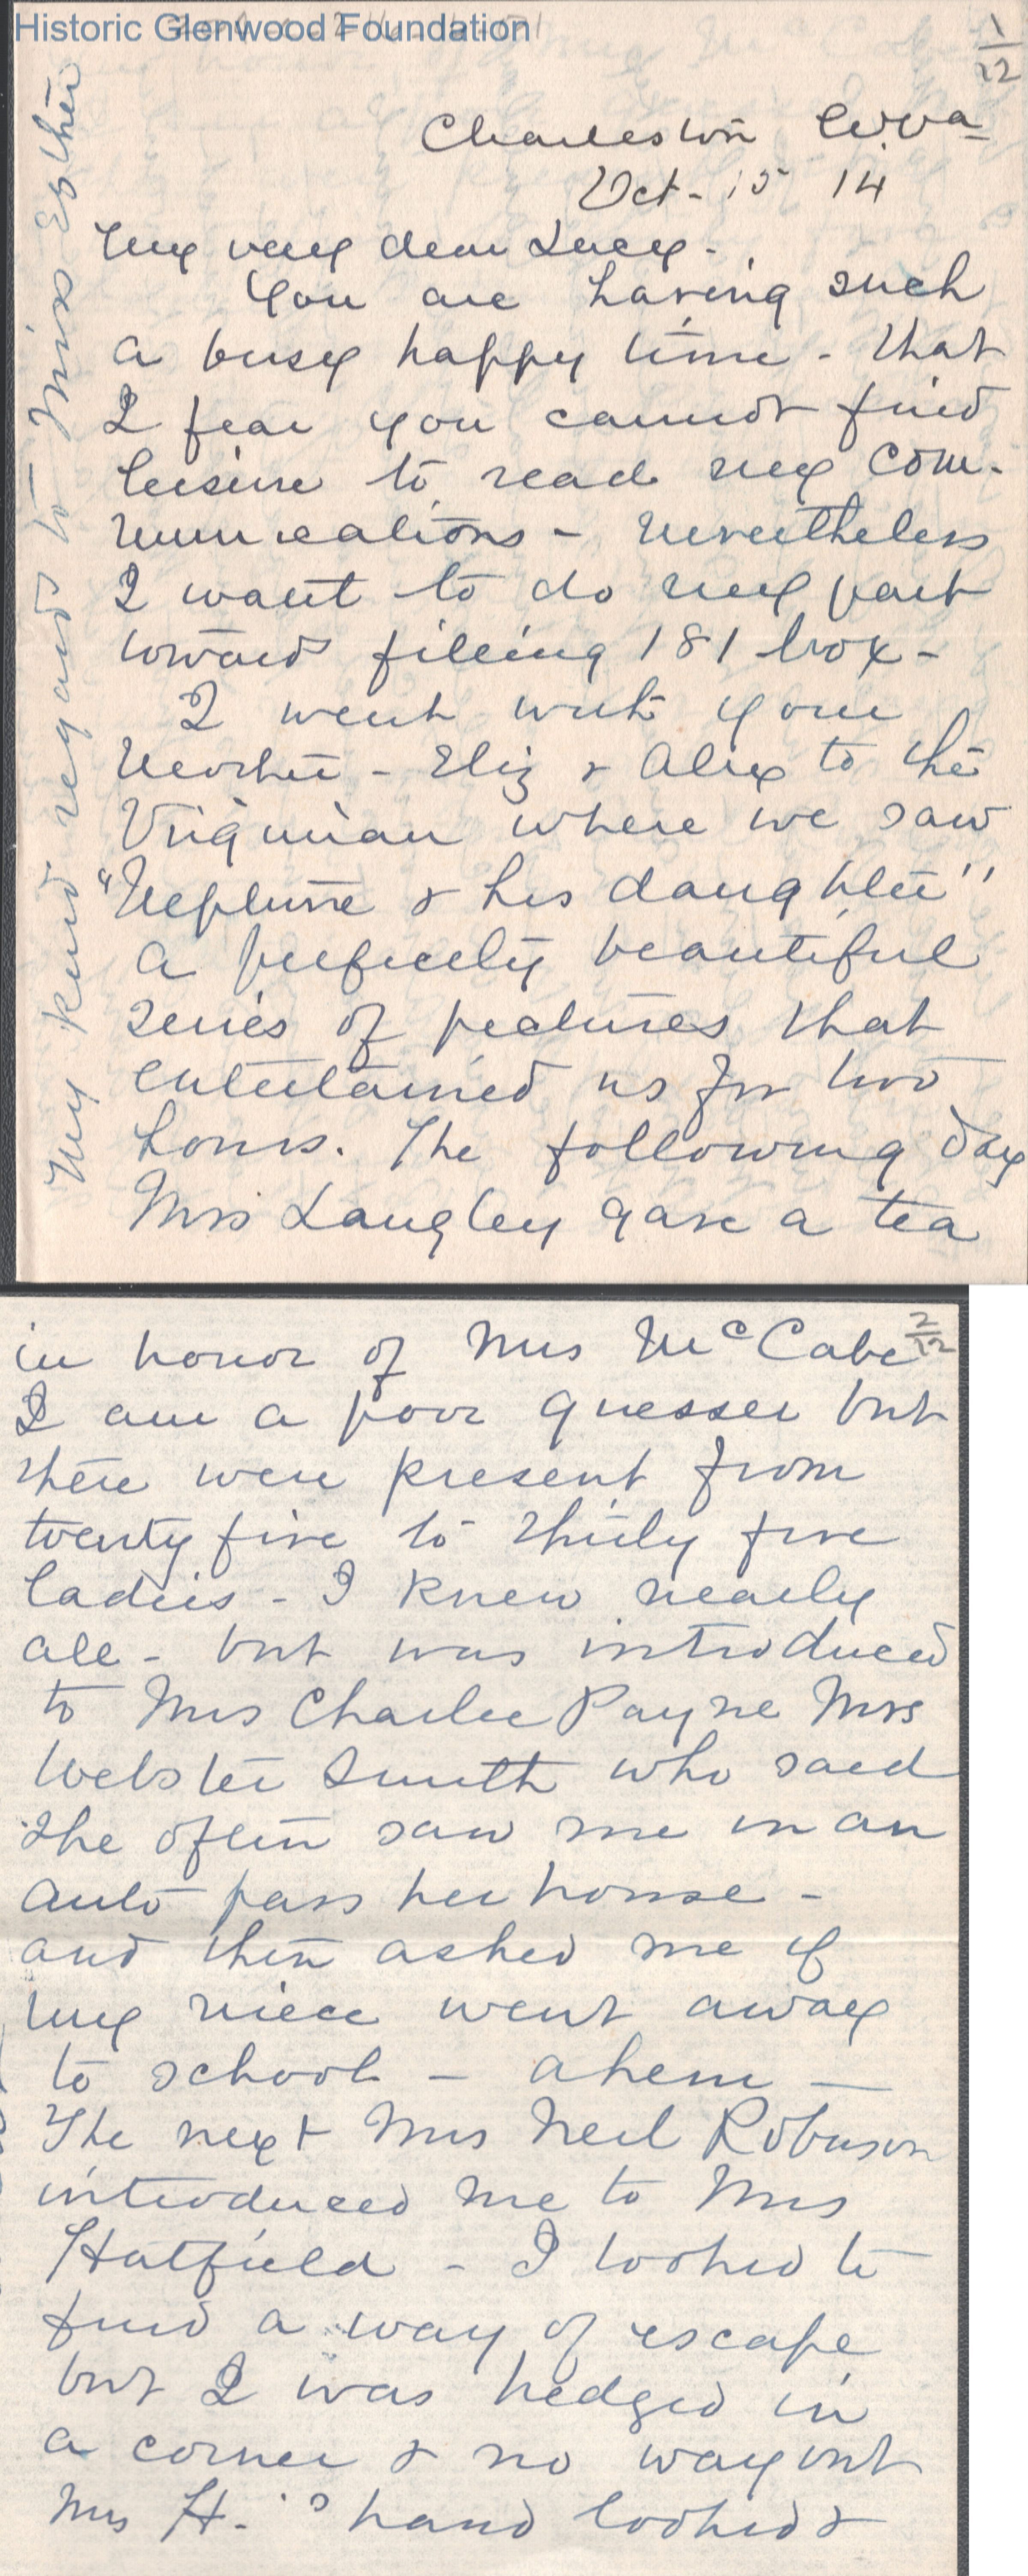 Historic Glenwood Foundation
1/12
Charleston W.Va
Oct - 15 14
My very dear Lucy -
You are having such
a busy happy time - that
I fear you cannot find
leisure to read my com-
munications - nevertheless
I want to do my part
toward filling 181 box -
I went with your
Mother - Eliz & Alex to the
Virginian where we saw
"Neptune & his daughter"
a perfectly beautiful
series of pictures that
entertained us for two
hours. The following day
Mrs Langley gave a tea
My kind regards to Miss Esther
2/12
in honor of Mrs McCabe
I am a poor guesser but
there were present from
twenty five to thirty five
ladies - I knew nearly
all - but was introduced
to Mrs Charlie Payne Mrs
Webster Smith who said
she often saw me in an
auto pass her house -
and then asked me if
my niece went away
to school - ahem -
The next Mrs Neil Robinson
introduced me to Mrs
Hatfield - I looked to
find a way of escape
but I was hedged in
a corner & no way out
Mrs H.'s hand looked &